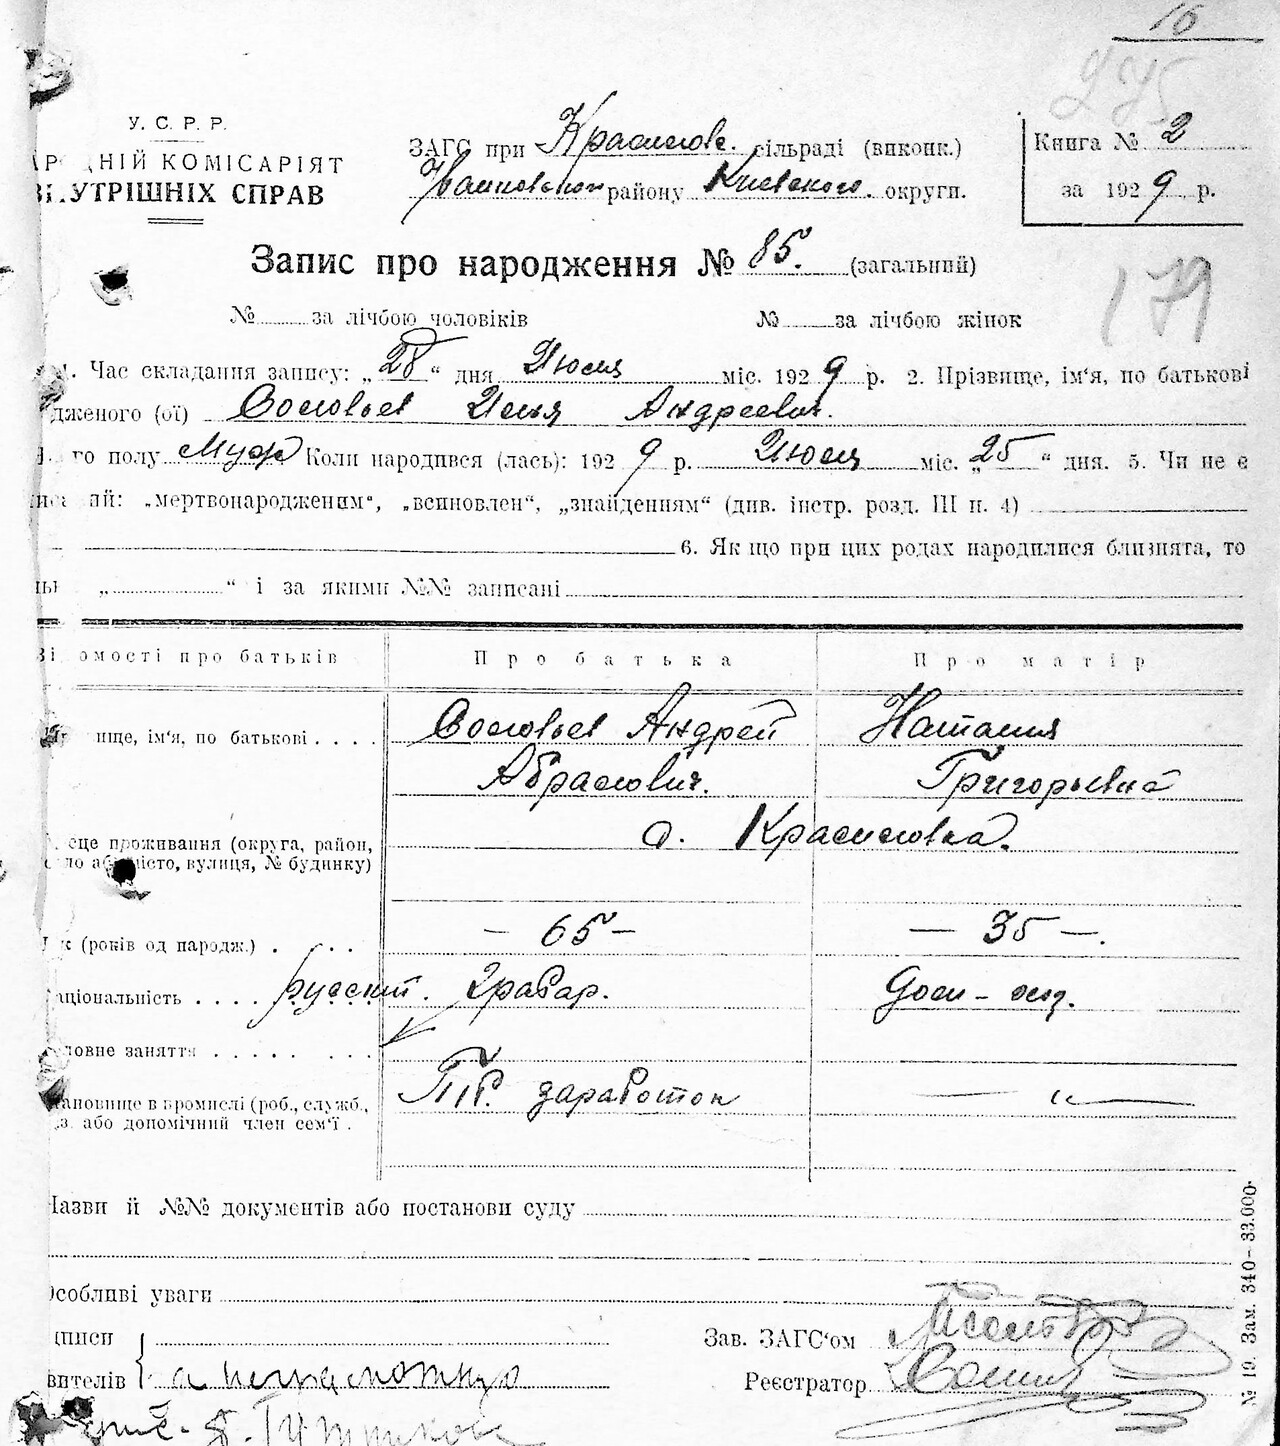 16
275
У. С. Р. Р.
НІЙ КОМІСАРІЯТ
УТРІШНІХ СПРАВ
ЗАГС при сільраді (виконк.)
району Киевского округи.
Книга № 2
за 1929 р.
Запис про народження № 85. (загальний)
179
№ за лічбою чоловіків № за лічбою жінок
1. Час складання запису: „28“ дня Июля міс. 1929 р. 2. Прізвище, ім'я, по батькові
дженого (ої) Соловьев Илья Андреевич.
го полу Муж Коли народився (лась): 1929 р. Июля міс. „25“ дня. 5. Чи не є
ий: „мертвонародженим“, „всиновлен“, „знайденням“ (див. інстр. розд. III п. 4)
6. Як що при цих родах народилися близнята, то
„ “ і за якими №№ записані
омості про батьків Про батька Про матір
ище, ім'я, по батькові . . . . Соловьев Андрей Наталия
Абрамович. Григорьевна
с. Красиловка.
сце проживання (округа, район,
ло або місто, вулиця, № будинку)
к (років од народж.) . . . . — 65 — — 35 —.
аціональність . . . . русский. Грабар. Дом-хоз.
ловне заняття . . . . .
Гл. заработок — „ —
ановище в промислі (роб., служб.,
з. або допомічний член сем'ї .
Назви й №№ документів або постанови суду
Особливі уваги
дписи
вителів
а неграмотную
Зав. ЗАГС'ом
Реєстратор
№ 19. Зам. 340—33.000.